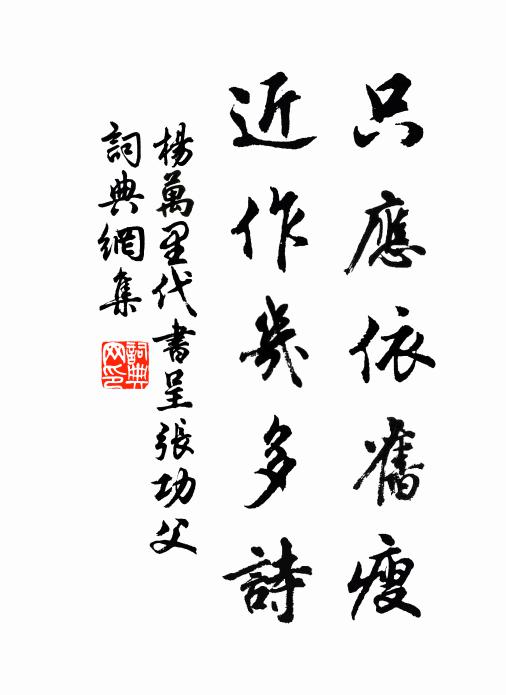 只應依舊瘦
近作幾多詩
楊萬里代書呈張功父
詞典網集
詞典
网印